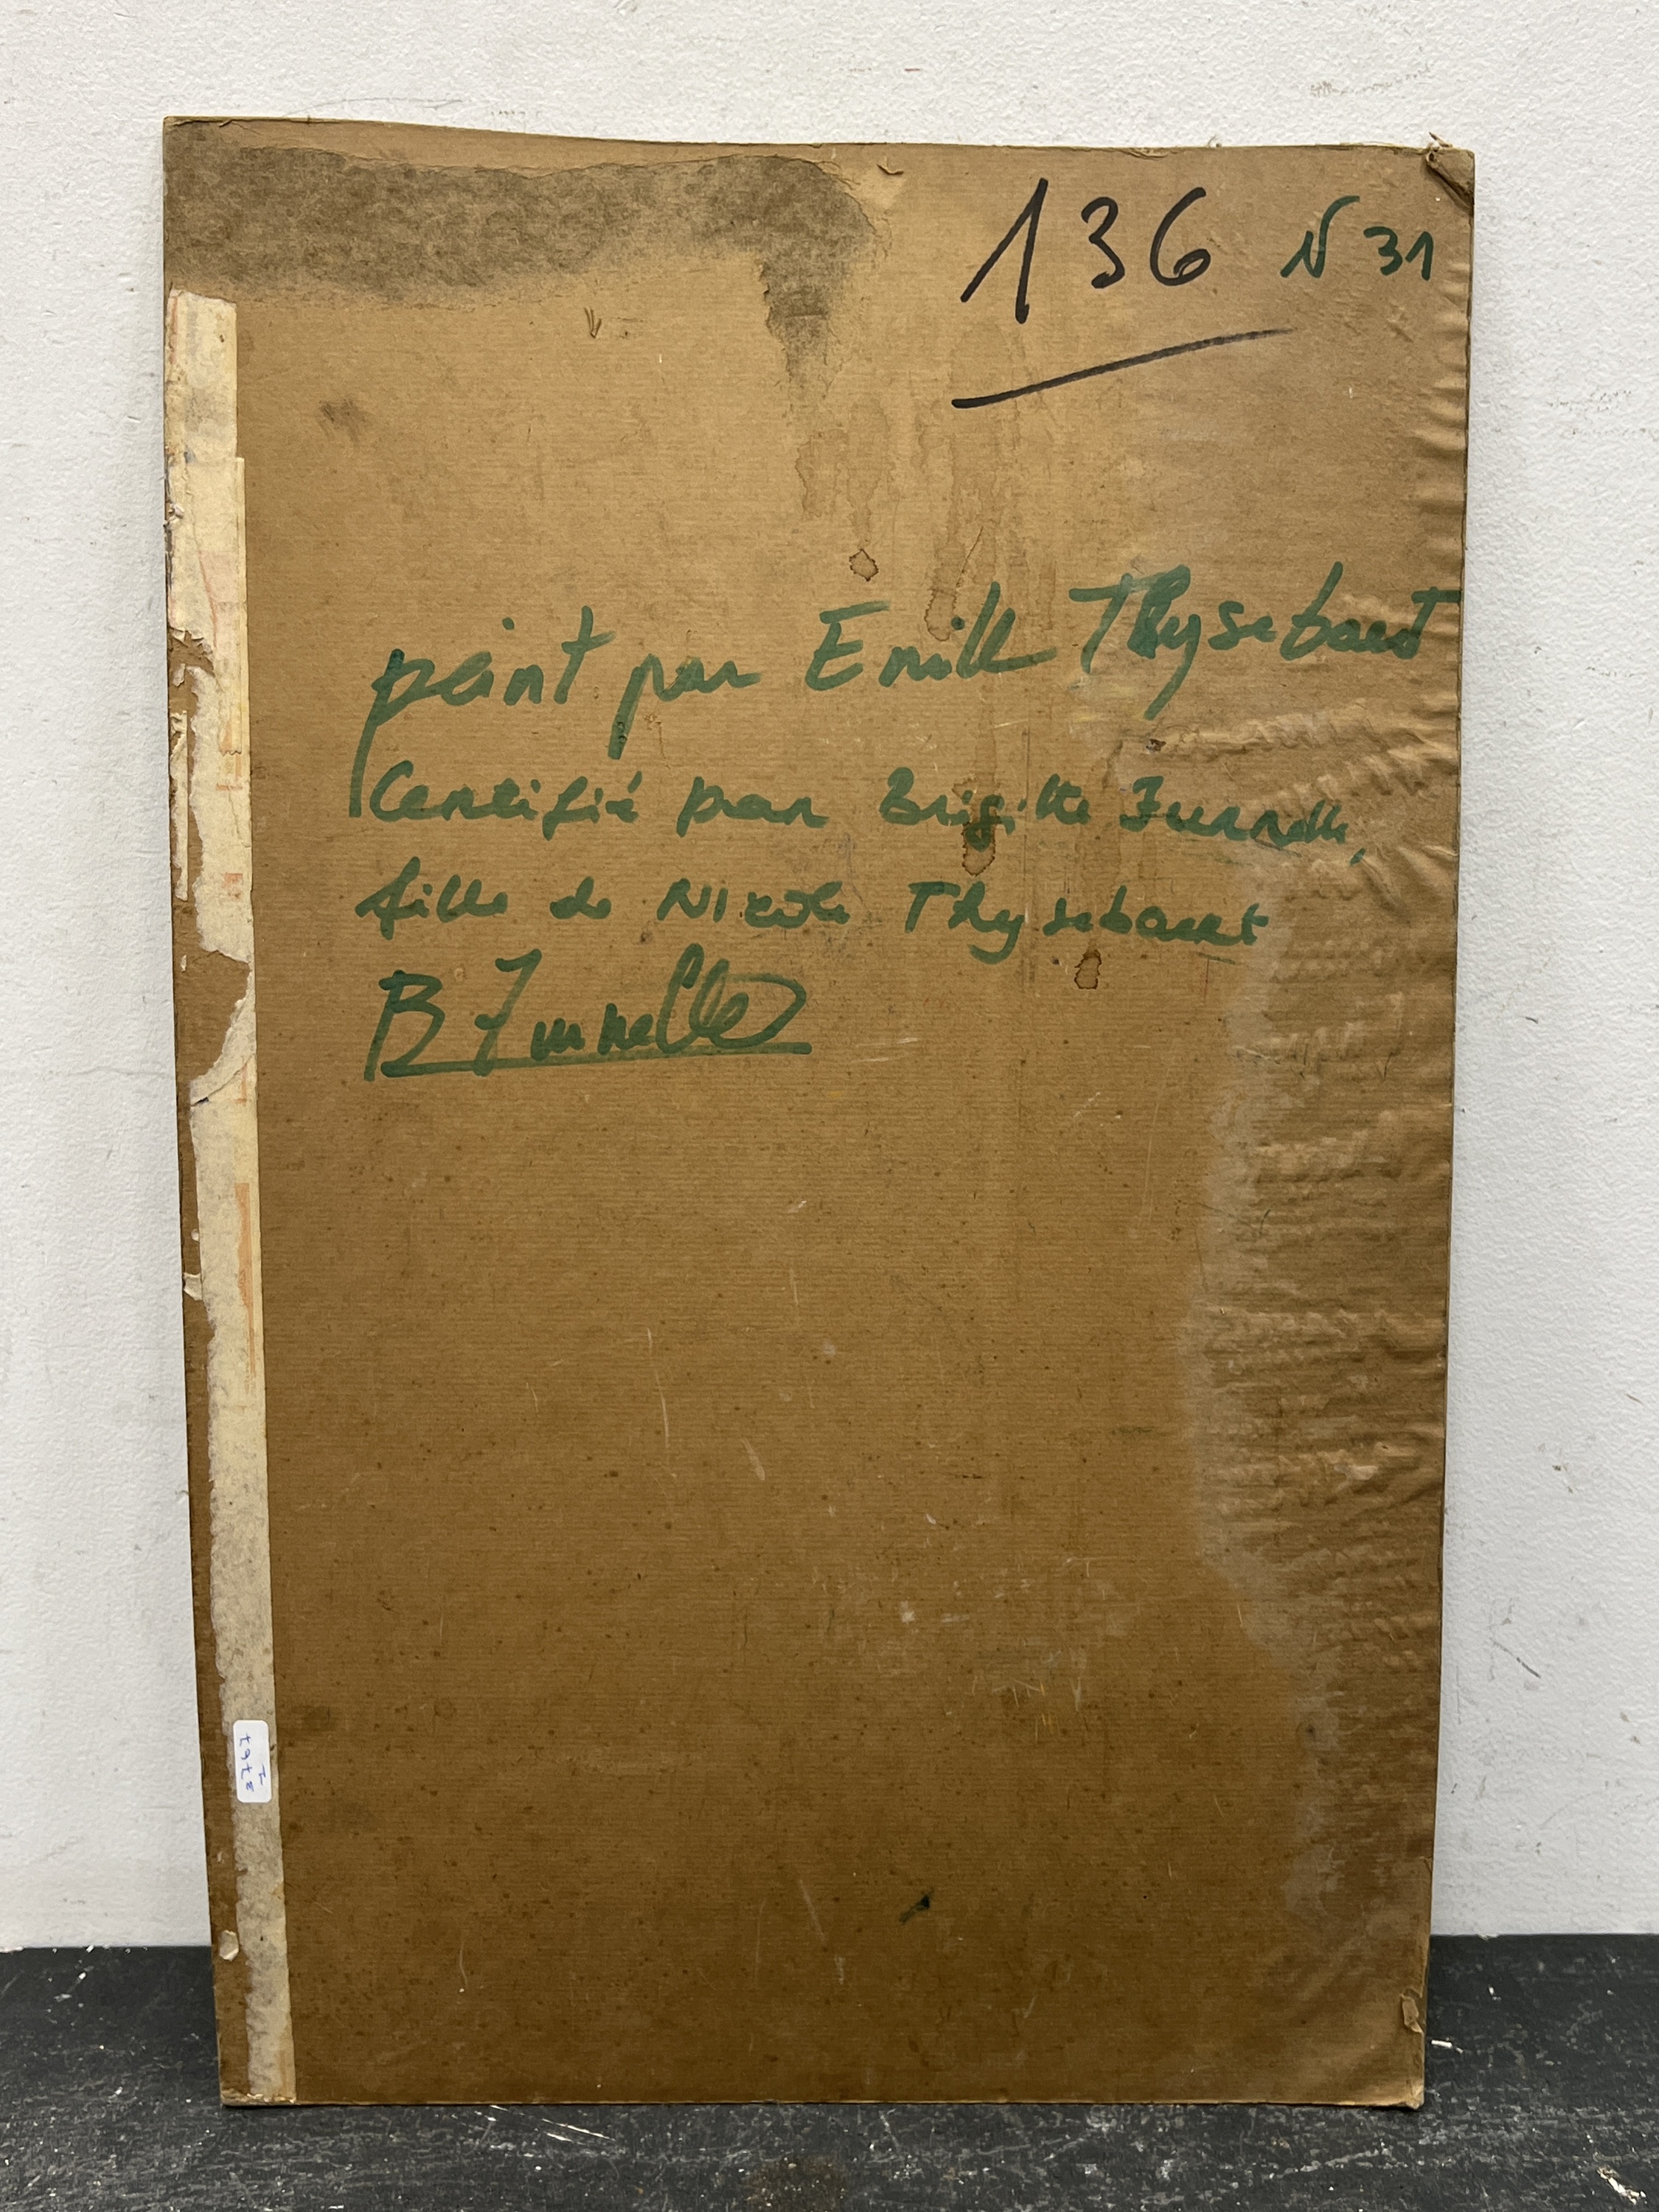 136 N 31
peint par Emile Thysebaert
Certifié par Brigitte
fille de Nicole Thysebaert
B